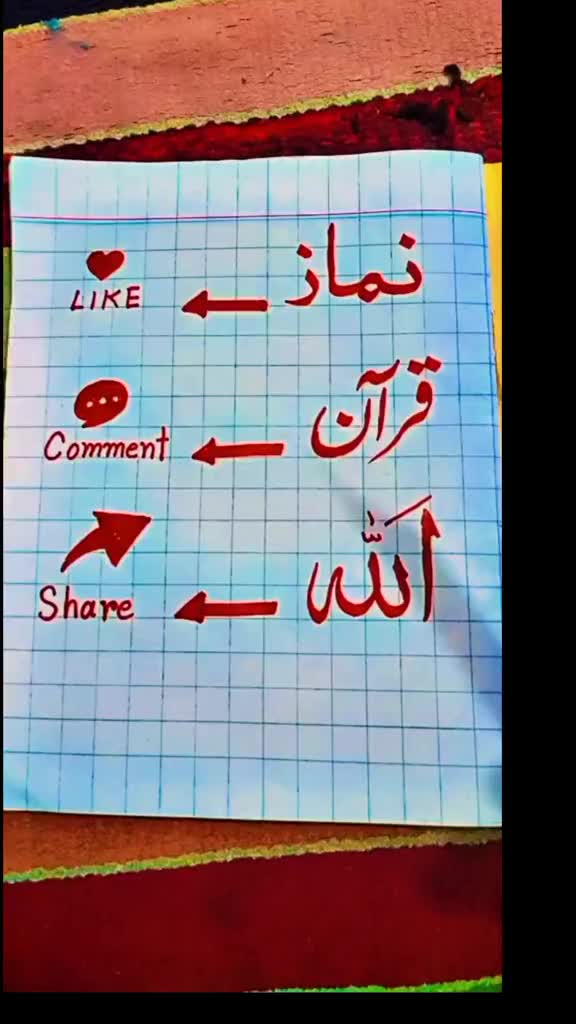 نماز LIKE
قرآن Comment
اَللّٰه Share